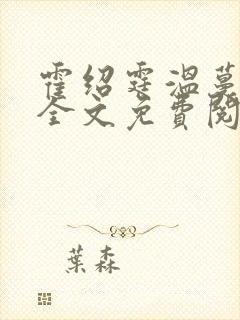 霍绍霆温蔓
全文免費閱
葉森